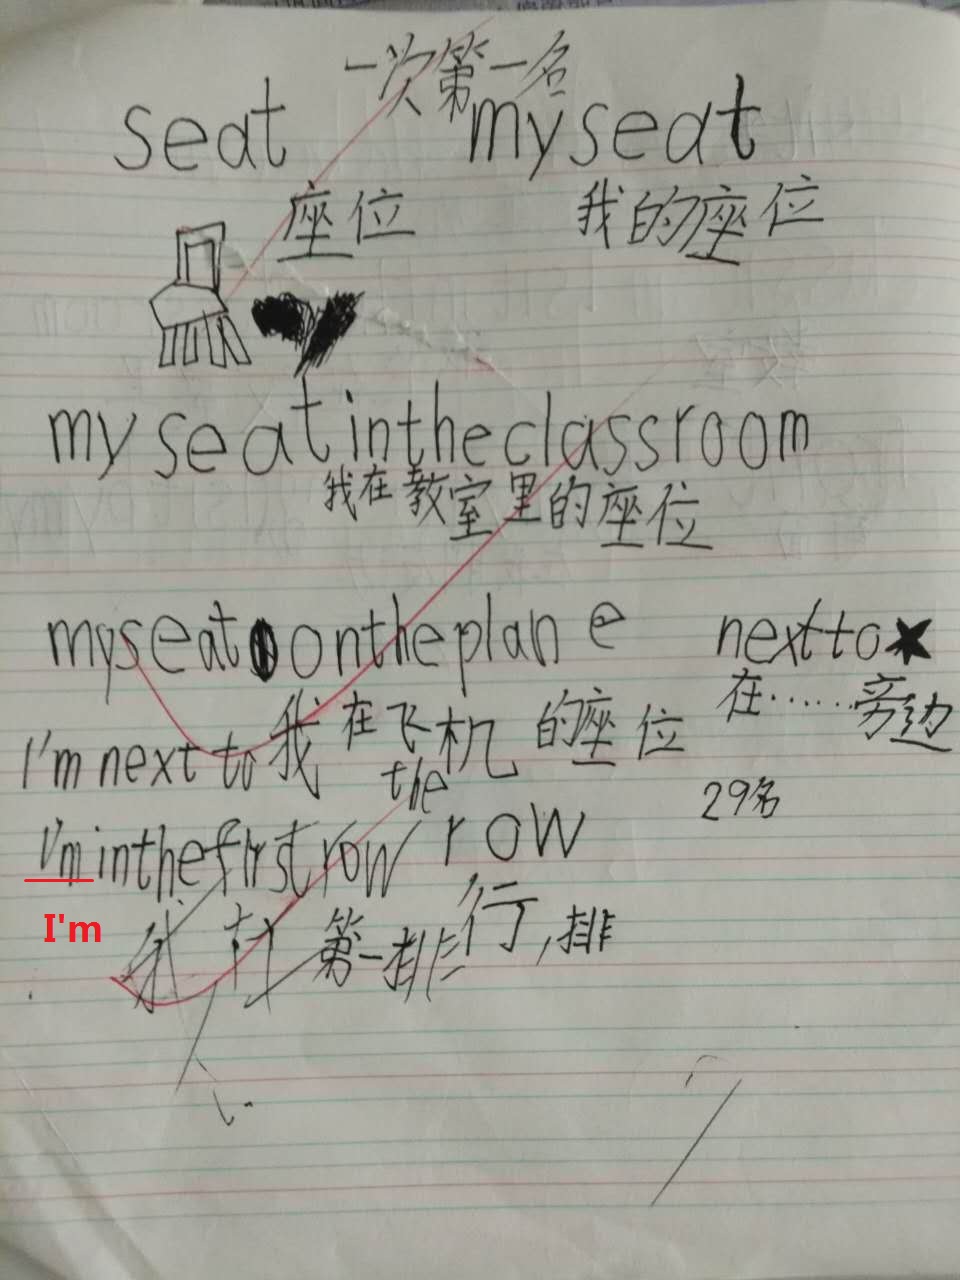 一次第一名
seat my seat
座位 我的座位
my seat in the classroom
我在教室里的座位
my seat on the plane next to
我在飞机的座位 在……旁边
I'm next to the
29名
I'm in the first row row
I'm
我 在 第一排 行,排